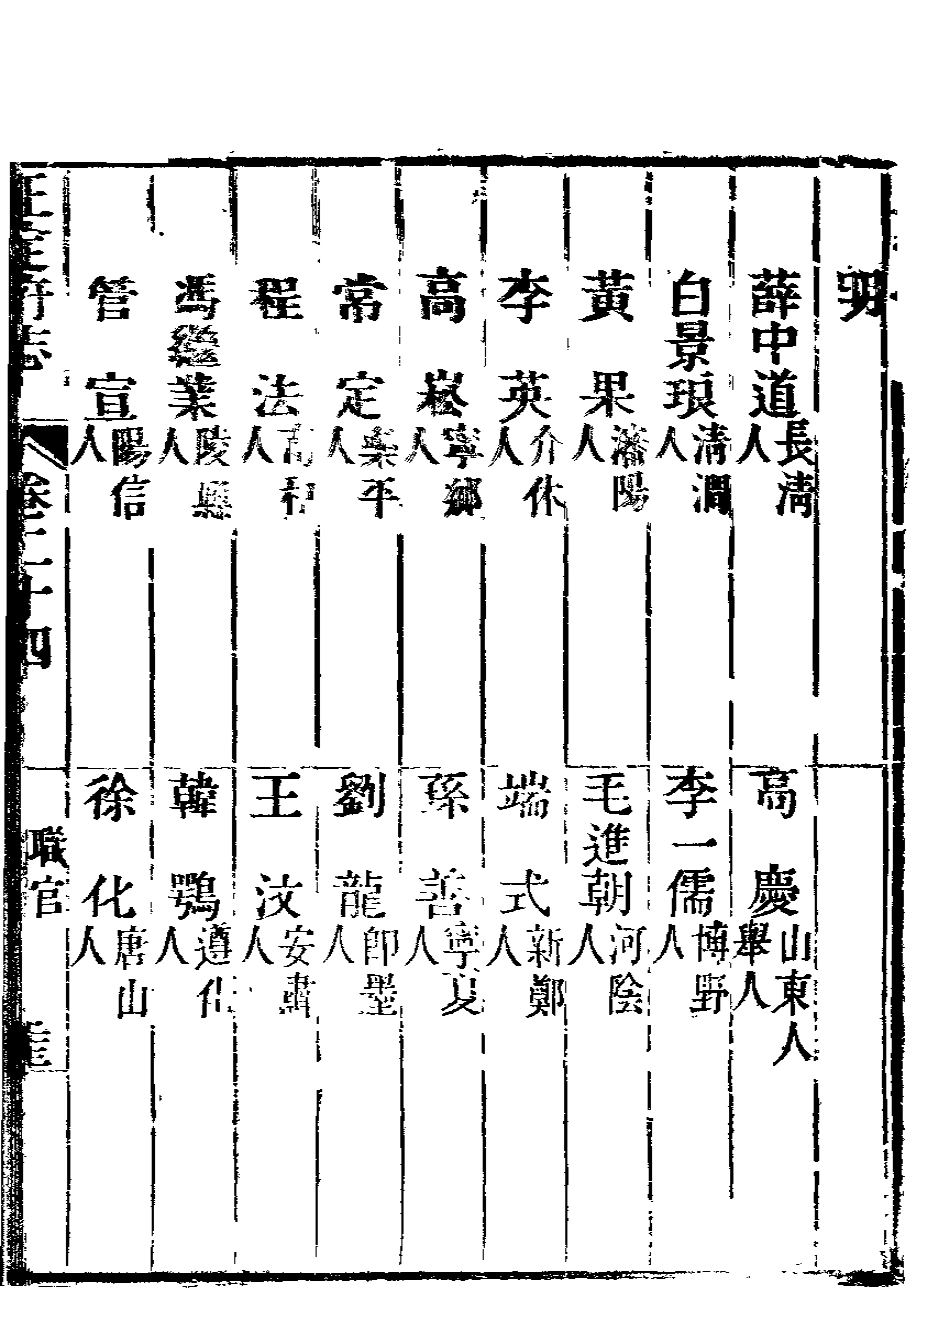 明
薛中道長淸人
高慶山東人舉人
白景琅淸澗人
李一儒博野人
黃果瀋陽人
毛進朝河陰人
李英介休人
端式新鄭人
高崧寧鄉人
孫善寧夏人
常定樂平人
劉龍卽墨人
程法人
王汶安肅人
馮繼業陵縣人
韓鶚遵化人
管宣陽信人
徐化唐山人
府志 卷二十四 職官